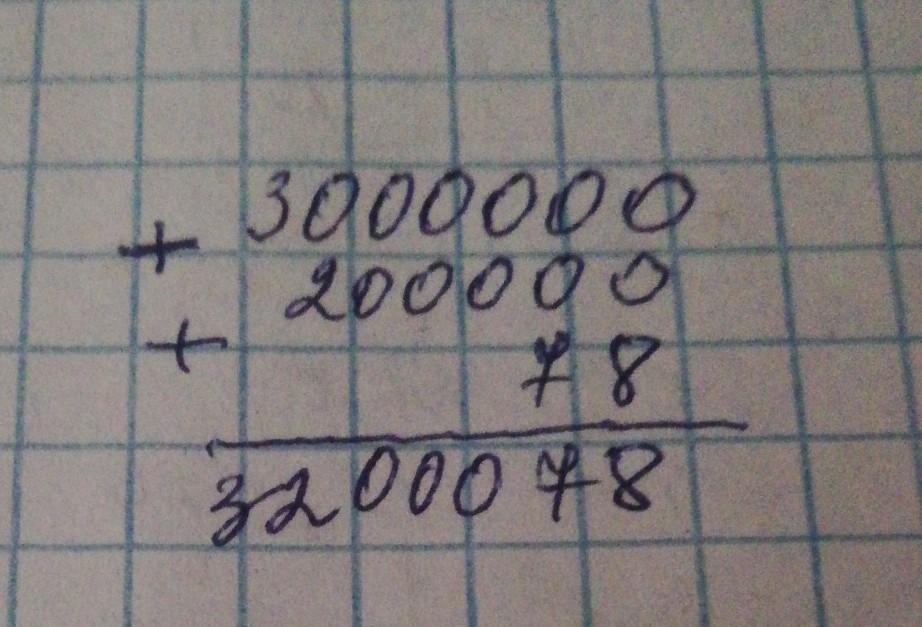 3000000
+
200000
+
78
3200078